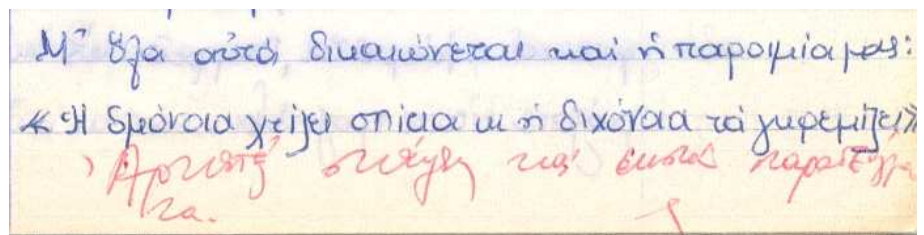 Μ' ὅλα αὐτά, δικαιώνεται καί ἡ παροιμία μας:
«Ἡ ὁμόνοια χτίζει σπίτια κι ἡ διχόνοια τά γκρεμίζει»
Ἀρκετές σκέψεις καί παραδείγμα
τα.